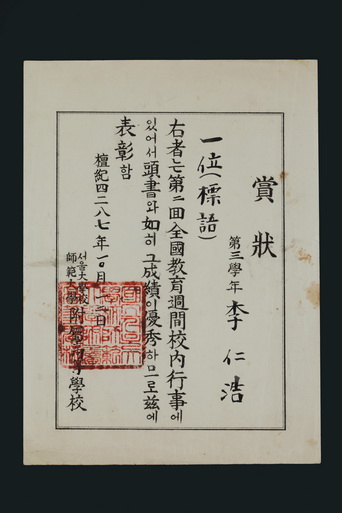 賞狀
第三學年 李仁浩
一位(標語)
右者는 第二回 全國敎育週間 校內行事에
있어서 頭書와 如히 그 成績이 優秀하므로 玆에
表彰함
檀紀四二八七年一〇月一二日
서울大學校
師範大學 附屬高等學校